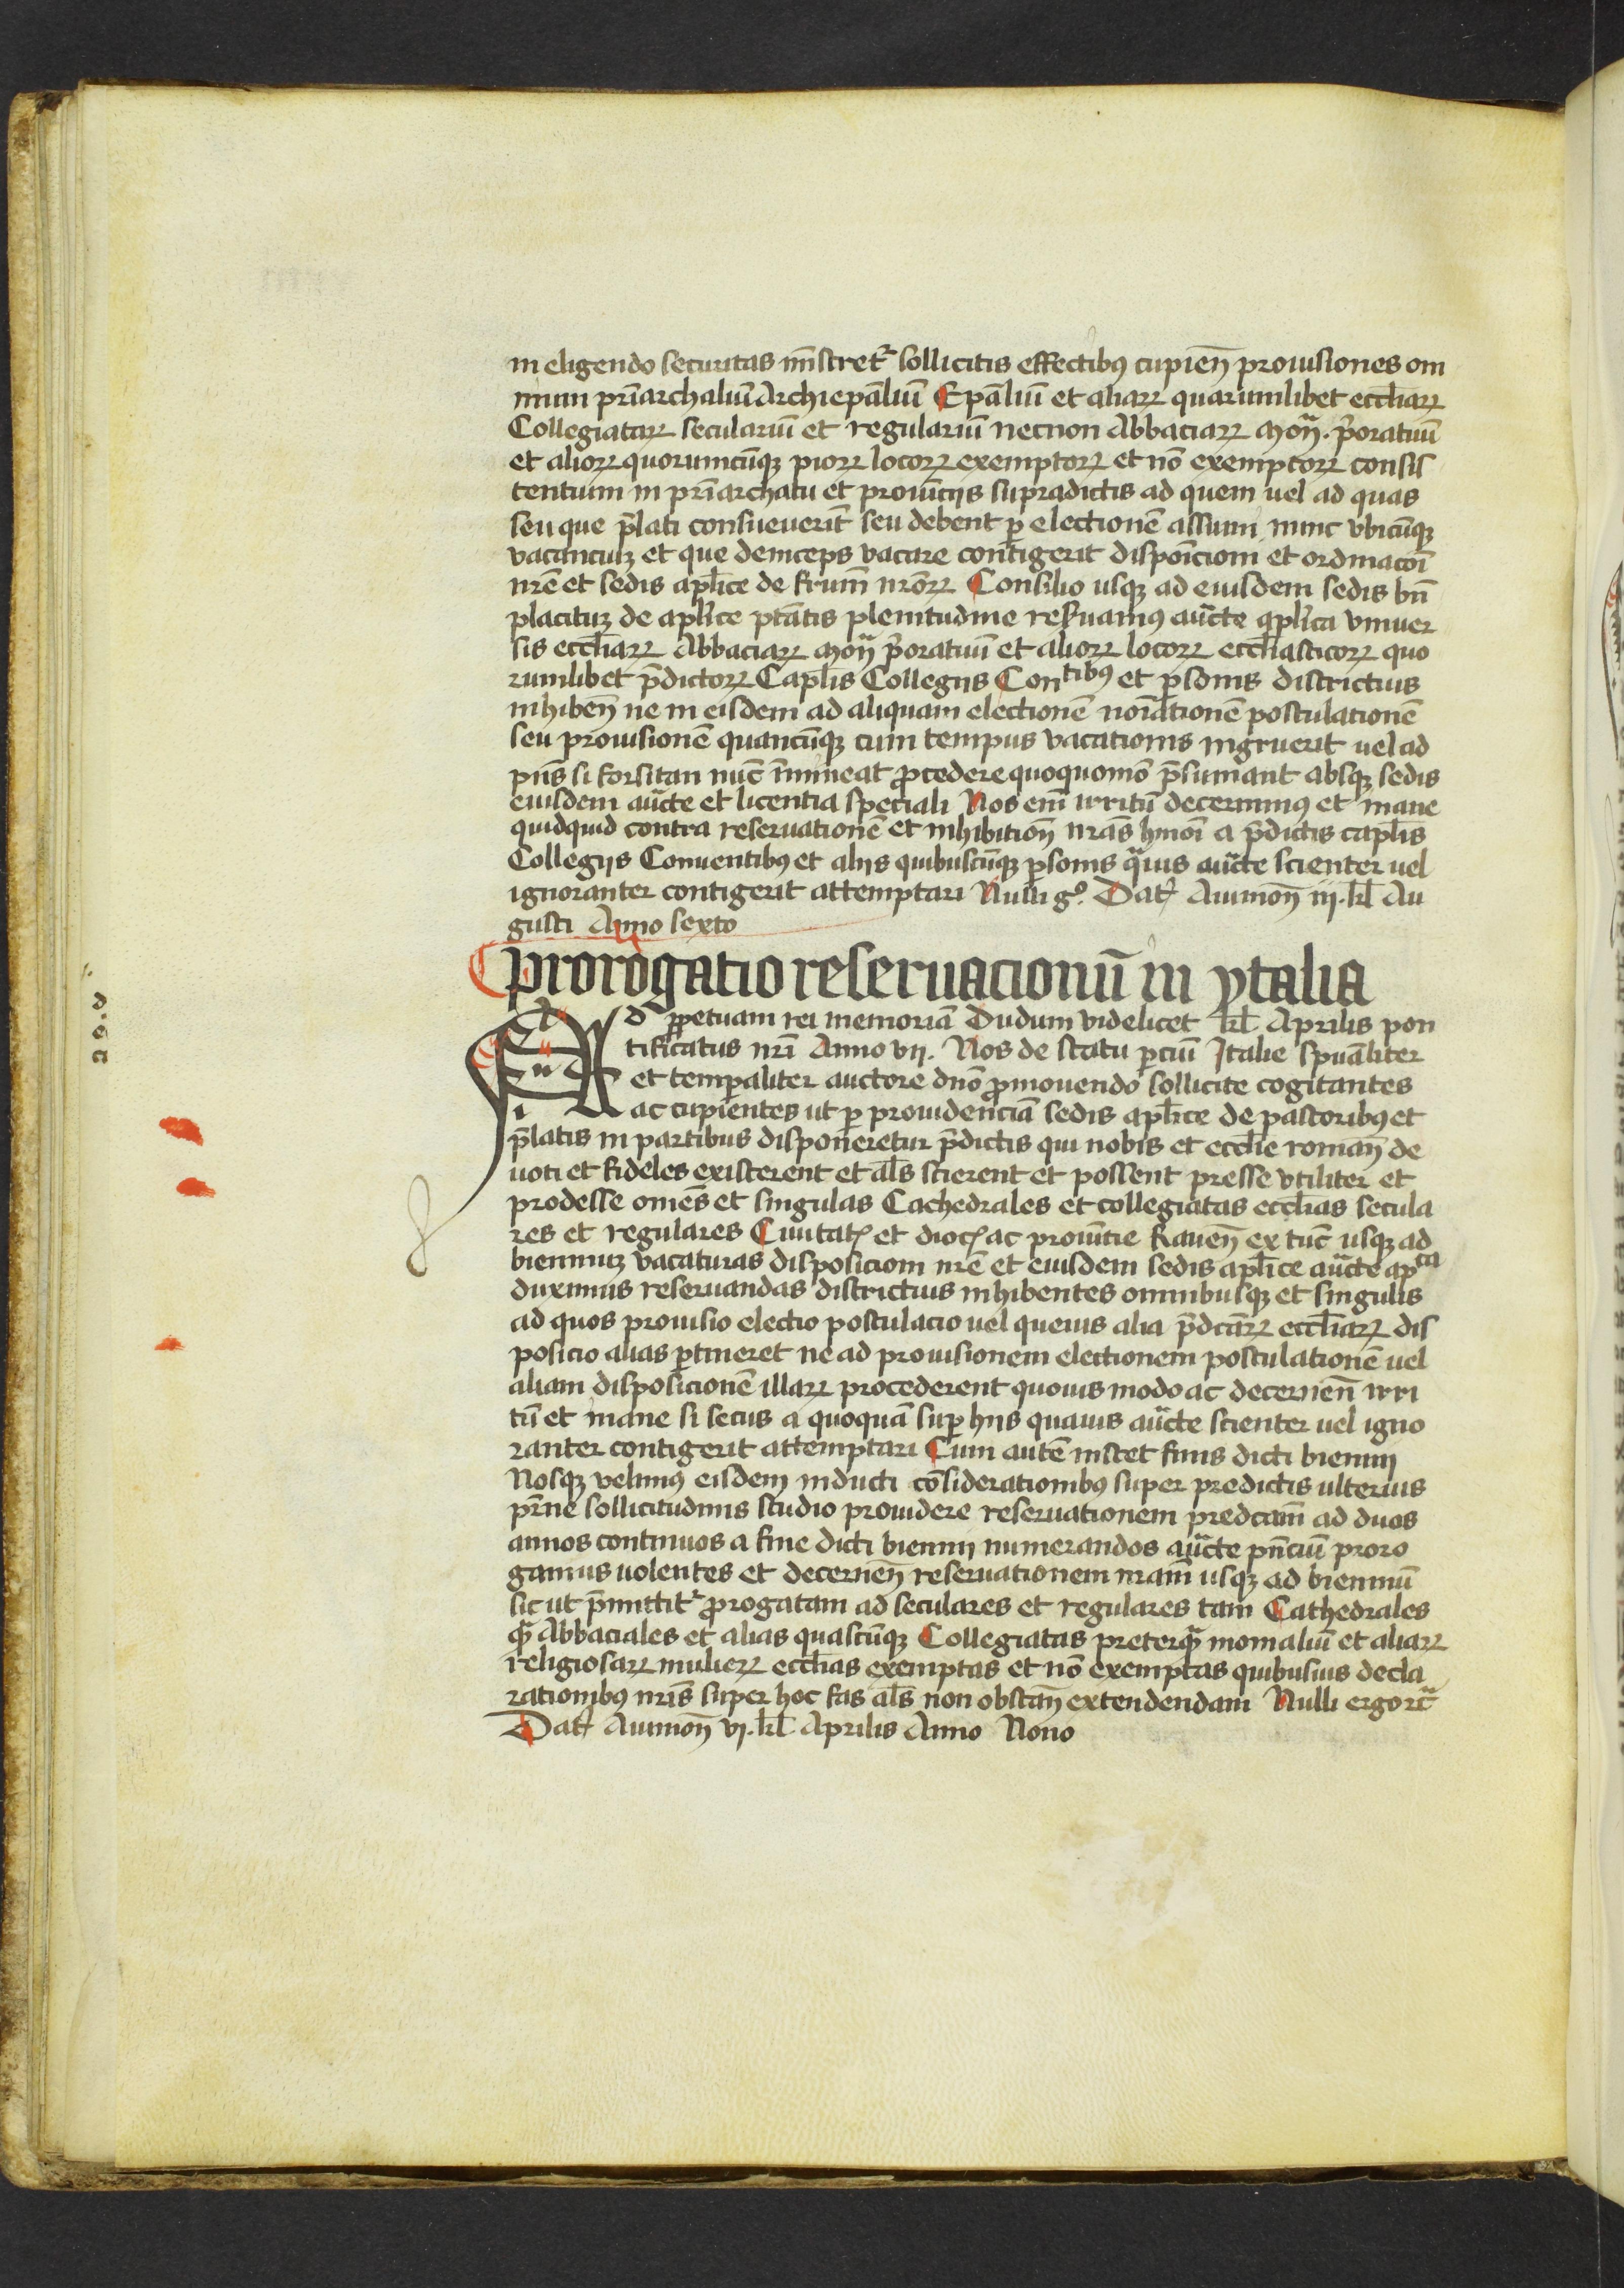 in eligendo securitas mīstret᷑ sollicitis effectibꝫ cupien̄ prouisiones om
nium pr̄iarchaliū Archiepāliū Epāliū et aliaꝝ quarumlibet eccl̄iaꝝ
Collegiataꝝ seculariū et regulariū necnon Abbaciaꝝ Mon̄. p̄oratuū
et alioꝝ quorumcūqꝫ pioꝝ locoꝝ exemptoꝝ et nō exemptoꝝ consis
tentium in pr̄iarchatu et prouīcijs supradictis ad quem uel ad quas
seu que p̄lati consueuerīt seu debent ꝑ electionē assumi nunc vbicūqꝫ
vacanciuꝫ et que deinceps vacare contigerit dispōicioni et ordinacōi
nr̄e et sedis apl̄ice de fr̄um nr̄oꝝ Consilio usqꝫ ad eiusdem sedis bn̄
placituꝫ de apl̄ice ptātis plenitudine reseruamꝰ aūcte apl̄ica vniuer
sis eccl̄iaꝝ Abbaciaꝝ Mon̄ p̄oratuū et alioꝝ locoꝝ eccl̄iasticoꝝ quo
rumlibet p̄dictoꝝ Capl̄is Collegijs Contibꝰ et ꝑsonis districtius
inhiben̄ ne in eisdem ad aliquam electionē noīationē postulationē
seu prouisionē quancūqꝫ cum tempus vacationis ingruerit uel ad
pn̄s si forsitan nūc īmineat ꝓcedere quoquomō p̄sumant absqꝫ sedis
eiusdem aūcte et licentia speciali Nos em̄ irritū decernimꝰ et inane
quidquid contra reseruationē et inhibition̄ nr̄as hmōi a p̄dictis capl̄is
Collegijs Conuentibꝰ et alijs quibuscūqꝫ ꝑsonis q̄uis aūcte scienter uel
ignoranter contigerit attemptari Nulli gͦ. Dat̄ Auinion̄ iij. kl̄ Au
gusti Anno sexto
Prorogatio reseruacionū in ytalia
Ad ꝑpetuam rei memoriā Dudum videlicet kl̄ Aprilis pon
tificatus nr̄i Anno vij. Nos de statu ꝑciū Italie spūaliter
et temporaliter auctore dn̄o ꝓmouendo sollicite cogitantes
ac cupientes ut ꝑ prouidenciā sedis apl̄ice de pastoribꝰ et
p̄latis in partibus disponeretur p̄dictis qui nobis et eccl̄ie roman̄ de
uoti et fideles existerent et al̄s scirent et possent preesse vtiliter et
prodesse om̄es et singulas Cathedrales et collegiatas eccl̄ias secula
res et regulares Ciuitat̄ et dioc̄ ac prouīcie Rauen̄ ex tūc usqꝫ ad
bienniuꝫ vacaturas disposicioni nr̄e et eiusdem sedis apl̄ice aūcte apᶜᵃ
duximus reseruandas districtius inhibentes omnibusqꝫ et singulis
ad quos prouisio electio postulacio uel queuis alia p̄dcāꝝ eccl̄iaꝝ dis
posicio alias ꝑtineret ne ad prouisionem electionem postulationē uel
aliam disposicionē illaꝝ procederent quouis modo ac decernen̄ irri
tū et inane si secus a quoquā suꝑ hijs quauis aūcte scienter uel igno
ranter contigerit attemptari Cum autē instet finis dicti biennij
Nosqꝫ velimꝰ eisdem inducti cōsiderationibꝰ super predictis ulterius
pr̄ne sollicitudinis studio prouidere reseruationem predcam̄ ad duos
annos continuos a fine dicti biennij numerandos aūcte pn̄ciū proro
gamus uolentes et decernen̄ reseruationem nr̄am usqꝫ ad bienniū
sic ut p̄mittit᷑ ꝓrogatam ad seculares et regulares tam Cathedrales
q̄ Abbaciales et alias quascūqꝫ Collegiatas preterq̄ monialiū et aliaꝝ
religiosaꝝ mulieꝝ eccl̄ias exemptas et nō exemptas quibusuis decla
rationibꝰ nr̄is super hoc fc̄is al̄s non obstan̄ extendendam Nulli ergo rc̄
Dat̄ Auinion̄ vj. kl̄ Aprilis Anno Nono